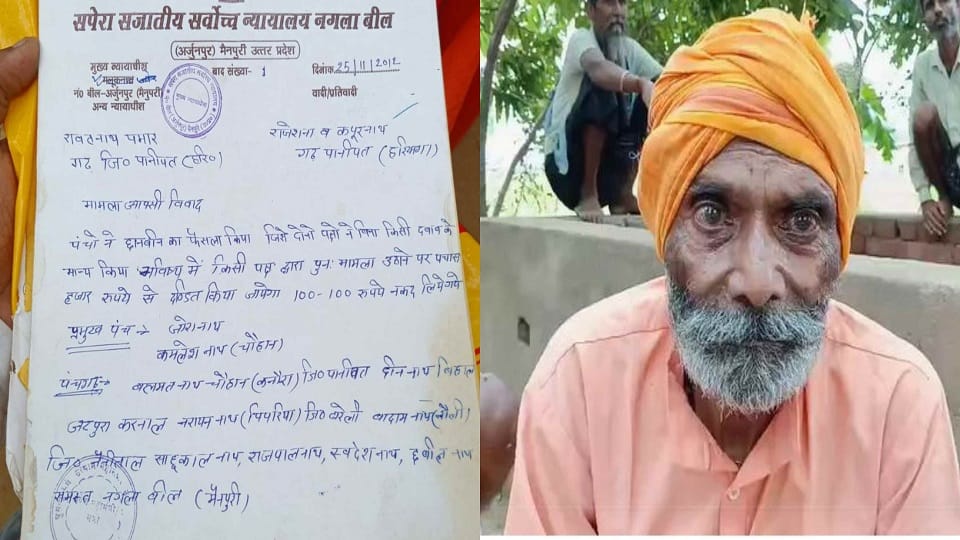 सपेरा सजातीय सर्वोच्च न्यायालय नगला बील
(अर्जुनपुर) मैनपुरी उत्तर प्रदेश
मुख्य न्यायाधीश
बाद संख्या- 1
दिनाँक 25/11/2012
नं० बील-अर्जुनपुर (मैनपुरी)
वादी/प्रतिवादी
अन्य न्यायाधीश
रावतनाथ पमार
राजेशना व कपूरनाथ
गढ जि० पानीपत (हरि०)
गढ़ पानीपत (हरियाणा)
मामला आपसी विवाद
पंचो ने छानबीन का फैसला किया जिसे दोनो पक्षो ने बिना किसी दवाब के
मान्य किया भविष्य में किसी पक्ष द्वारा पुनः मामला उठाने पर पचास
हजार रुपये से दण्डित किया जायेगा 100-100 रुपये नकद लिये गये
प्रमुख पंच →
कमलेश नाथ (चौहान)
पंचगढ़→ बलमत नाथ-चौहान जि० पानीपत दीन नाथ
जटपुरा करनाल नरायन नाथ (पिपरिया) जि० बरेली बादाम नाथ
जि० नैनीताल साहूकाल नाथ, राजपालनाथ, स्वदेशनाथ,
समस्त नगला बील (मैनपुरी)